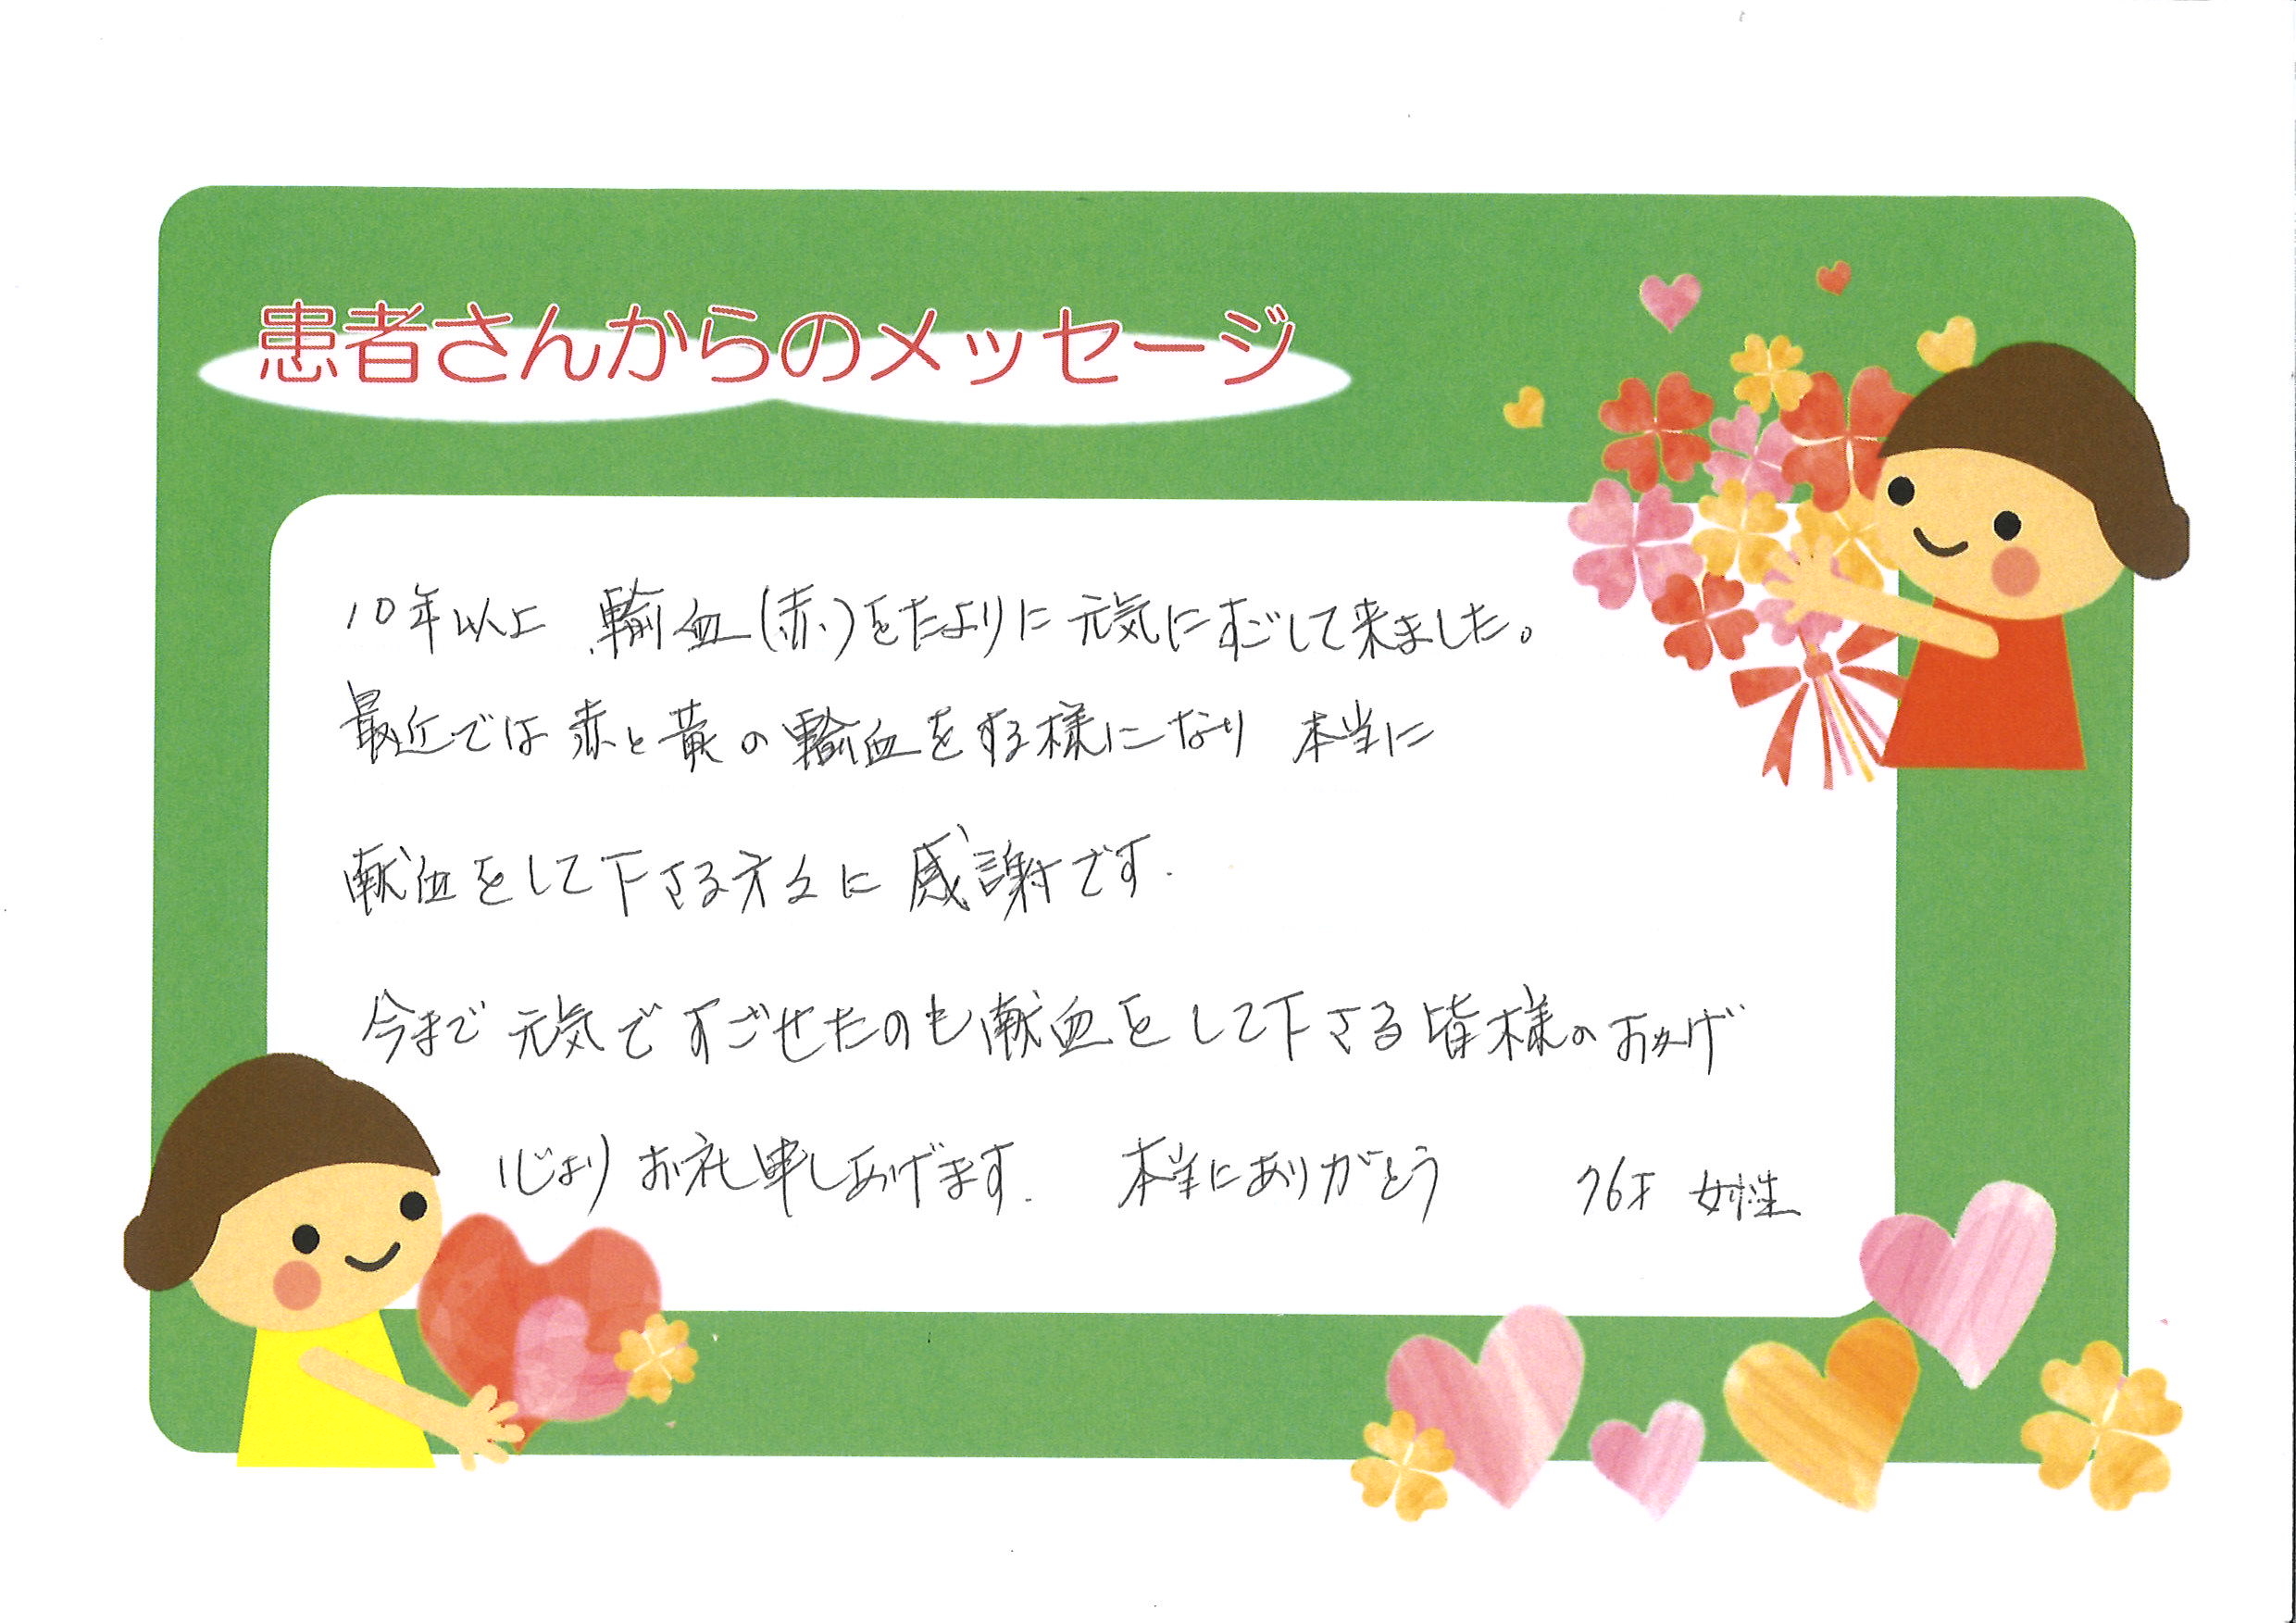 患者さんからのメッセージ
10年以上 輸血(赤)をたよりに元気にすごして来ました。
最近では赤と黄の輸血をする様になり 本当に
献血をして下さる方々に感謝です.
今まで元気ですごせたのも献血をして下さる皆様のおかげ
心より お礼申しあげます. 本当にありがとう 76才 女性